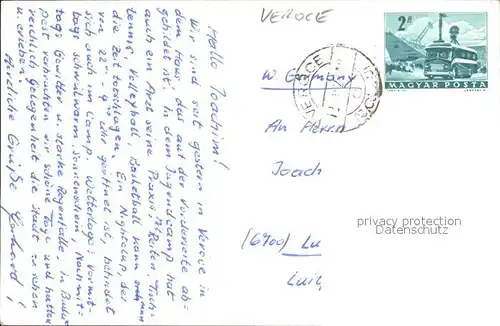 VEROCE
Hallo Joachim!
Wir sind seit gestern in Veroce in
dem Haus, das auf der Vorderseite ab-
gebildet ist. In dem Jugendcamp hat
auch ein Arzt seine Praxis. Mit Reiten, Tisch-
tennis, Volleyball, Basketball kann man
die Zeit totschlagen. Ein Nightclub, der
von 22°°- 4°° Uhr geöffnet ist, befindet
sich auch im Camp. Wetterlage: vormit-
tags schwülwarm, Sonnenschein, Nachmit-
tags Gewitter u. starke Regenfälle. In Buda-
pest verbrachten wir schöne Tage und hatten
reichlich Gelegenheit die Stadt zu sehen
u. erleben!
Herzliche Grüße
2 Ft
MAGYAR POSTA
VERŐCE
W. Germany
An Herrn
Joach
(6700) Lu
Luit
privacy protection
Datenschutz